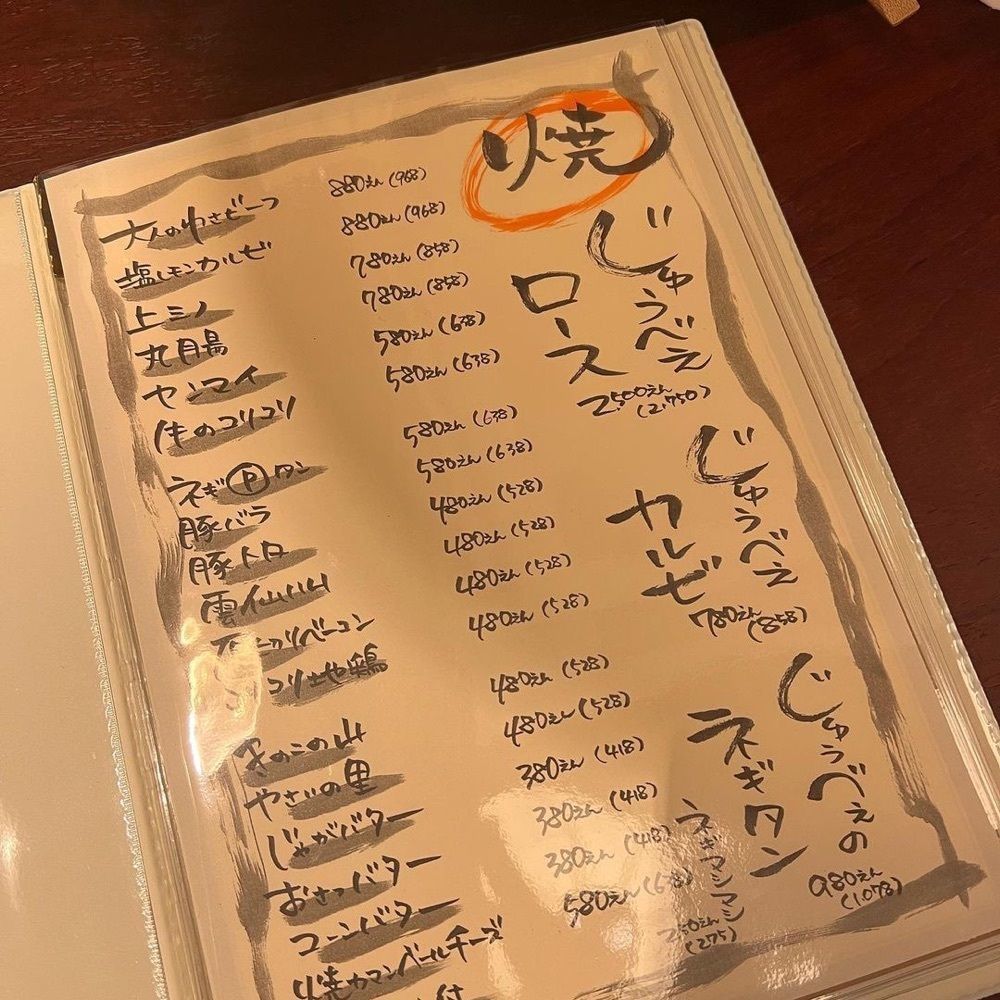 焼
じゅうべえ
ロース
2,500えん
(2,750)
じゅうべえ
カルビ
780えん
(858)
じゅうべえの
ネギタン
980えん
(1,078)
ネギマシマシ
250えん
(275)
大人のわさビーフ 880えん(968)
塩レモンカルビ 880えん(968)
上ミノ 780えん(858)
丸腸 780えん(858)
ヤンマイ 580えん(638)
牛のコリコリ 580えん(638)
ネギⓅタン 580えん(638)
豚バラ 580えん(638)
豚トロ 480えん(528)
雲仙ハム 480えん(528)
ベーコン 480えん(528)
コリ 鶏 480えん(528)
きのこの山 480えん(528)
やさいの里 480えん(528)
じゃがバター 380えん(418)
おさつバター 380えん(418)
コーンバター 380えん(418)
焼カマンベールチーズ 580えん(638)
付